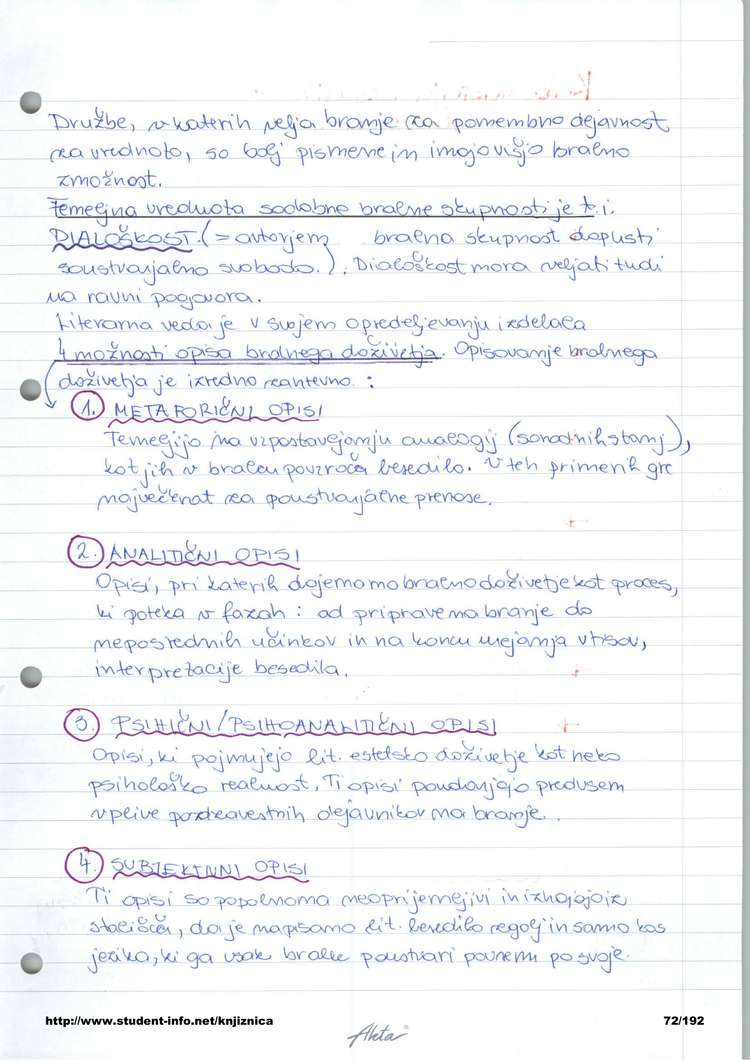 Družbe, v katerih velja branje za pomembno dejavnost,
za vrednoto, so bolj pismene in imajo višjo bralno
zmožnost.
Temeljna vrednota sodobne bralne skupnosti je t.i.
DIALOŠKOST. (= avtorjem bralna skupnost dopusti
soustvarjalno svobodo.). Dialoškost mora veljati tudi
na ravni pogovora.
Literarna veda je v svojem opredeljevanju izdelala
4 možnosti opisa bralnega doživetja. Opisovanje bralnega
doživetja je izredno zahtevno :
1. METAFORIČNI OPISI
Temeljijo na vzpostavljanju analogij (sorodnih stanj),
kot jih v bralcu povzroča besedilo. V teh primerih gre
največkrat za poustvarjalne prenose.
2. ANALITIČNI OPISI
Opisi, pri katerih dojemamo bralno doživetje kot proces,
ki poteka v fazah : od priprave na branje do
neposrednih učinkov in na koncu urejanja vtisov,
interpretacije besedila.
3. PSIHIČNI/PSIHOANALITIČNI OPISI
Opisi, ki pojmujejo lit. estetsko doživetje kot neko
psihološko realnost. Ti opisi poudarjajo predvsem
vplive podzavestnih dejavnikov na branje.
4. SUBJEKTIVNI OPISI
Ti opisi so popolnoma neoprijemljivi in izhajajo iz
stališča, da je napisano lit. besedilo regolj in samo kos
jezika, ki ga vsak bralec poustvari povsem po svoje.
http://www.student-info.net/knjiznica
72/192
Aheta